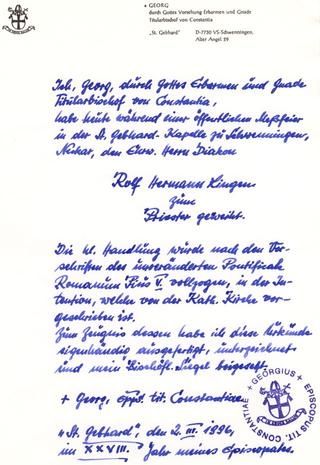 + GEORG
durch Gottes Vorsehung Erbarmen und Gnade
Titularbischof von Constantia
"St. Gebhard" D-7730 VS-Schwenningen,
Alter Angel 29
Ich, Georg, durch Gottes Erbarmen und Gnade
Titularbischof von Constantia,
habe heute während einer öffentlichen Meßfeier
in der St. Gebhard-Kapelle zu Schwenningen,
Neckar, den Ehrw. Herrn Diakon
Rolf Hermann Lingen
zum
Priester geweiht.
Die hl. Handlung wurde nach den Vor-
schriften des unveränderten Pontificale
Romanum Pius V. vollzogen, in der In-
tention, welche von der Kath. Kirche vor-
geschrieben ist.
Zum Zeugnis dessen habe ich diese Urkunde
eigenhändig ausgefertigt, unterzeichnet
und mein Bischöfl. Siegel beigesetzt.
+ Georg, Epps. tit. Constantiae
"St. Gebhard", den 2. III. 1996,
im XXVIII. Jahr meines Episcopates.
+ GEORGIUS + EPISCOPUS TIT. CONSTANTIAE